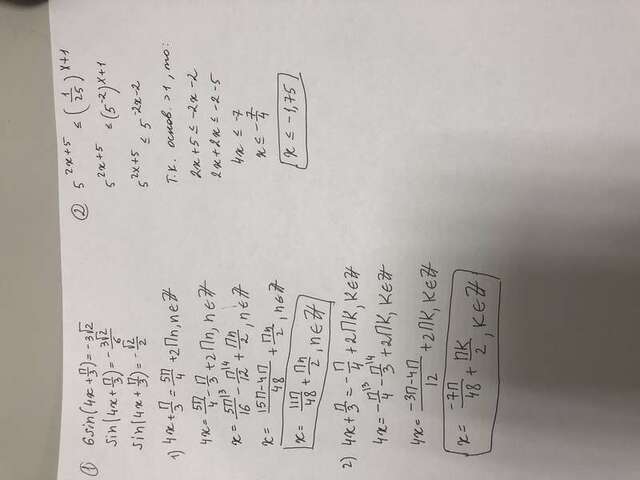 ① 6sin(4x+π/3)=-3√2
sin(4x+π/3)=-3√2/6
sin(4x+π/3)=-√2/2
1) 4x+π/3=5π/4+2πn, n∈Z
4x=5π/4-π/3+2πn, n∈Z
x=5π/16-π/12+πn/2, n∈Z
x=(15π-4π)/48+πn/2, n∈Z
x=11π/48+πn/2, n∈Z
2) 4x+π/3=-π/4+2πk, k∈Z
4x=-π/4-π/3+2πk, k∈Z
4x=(-3π-4π)/12+2πk, k∈Z
x=-7π/48+πk/2, k∈Z
② 5^(2x+5) ≤ (1/25)^(x+1)
5^(2x+5) ≤ (5^-2)^(x+1)
5^(2x+5) ≤ 5^(-2x-2)
Т.к. основ. >1, то:
2x+5 ≤ -2x-2
2x+2x ≤ -2-5
4x ≤ -7
x ≤ -7/4
x ≤ -1,75